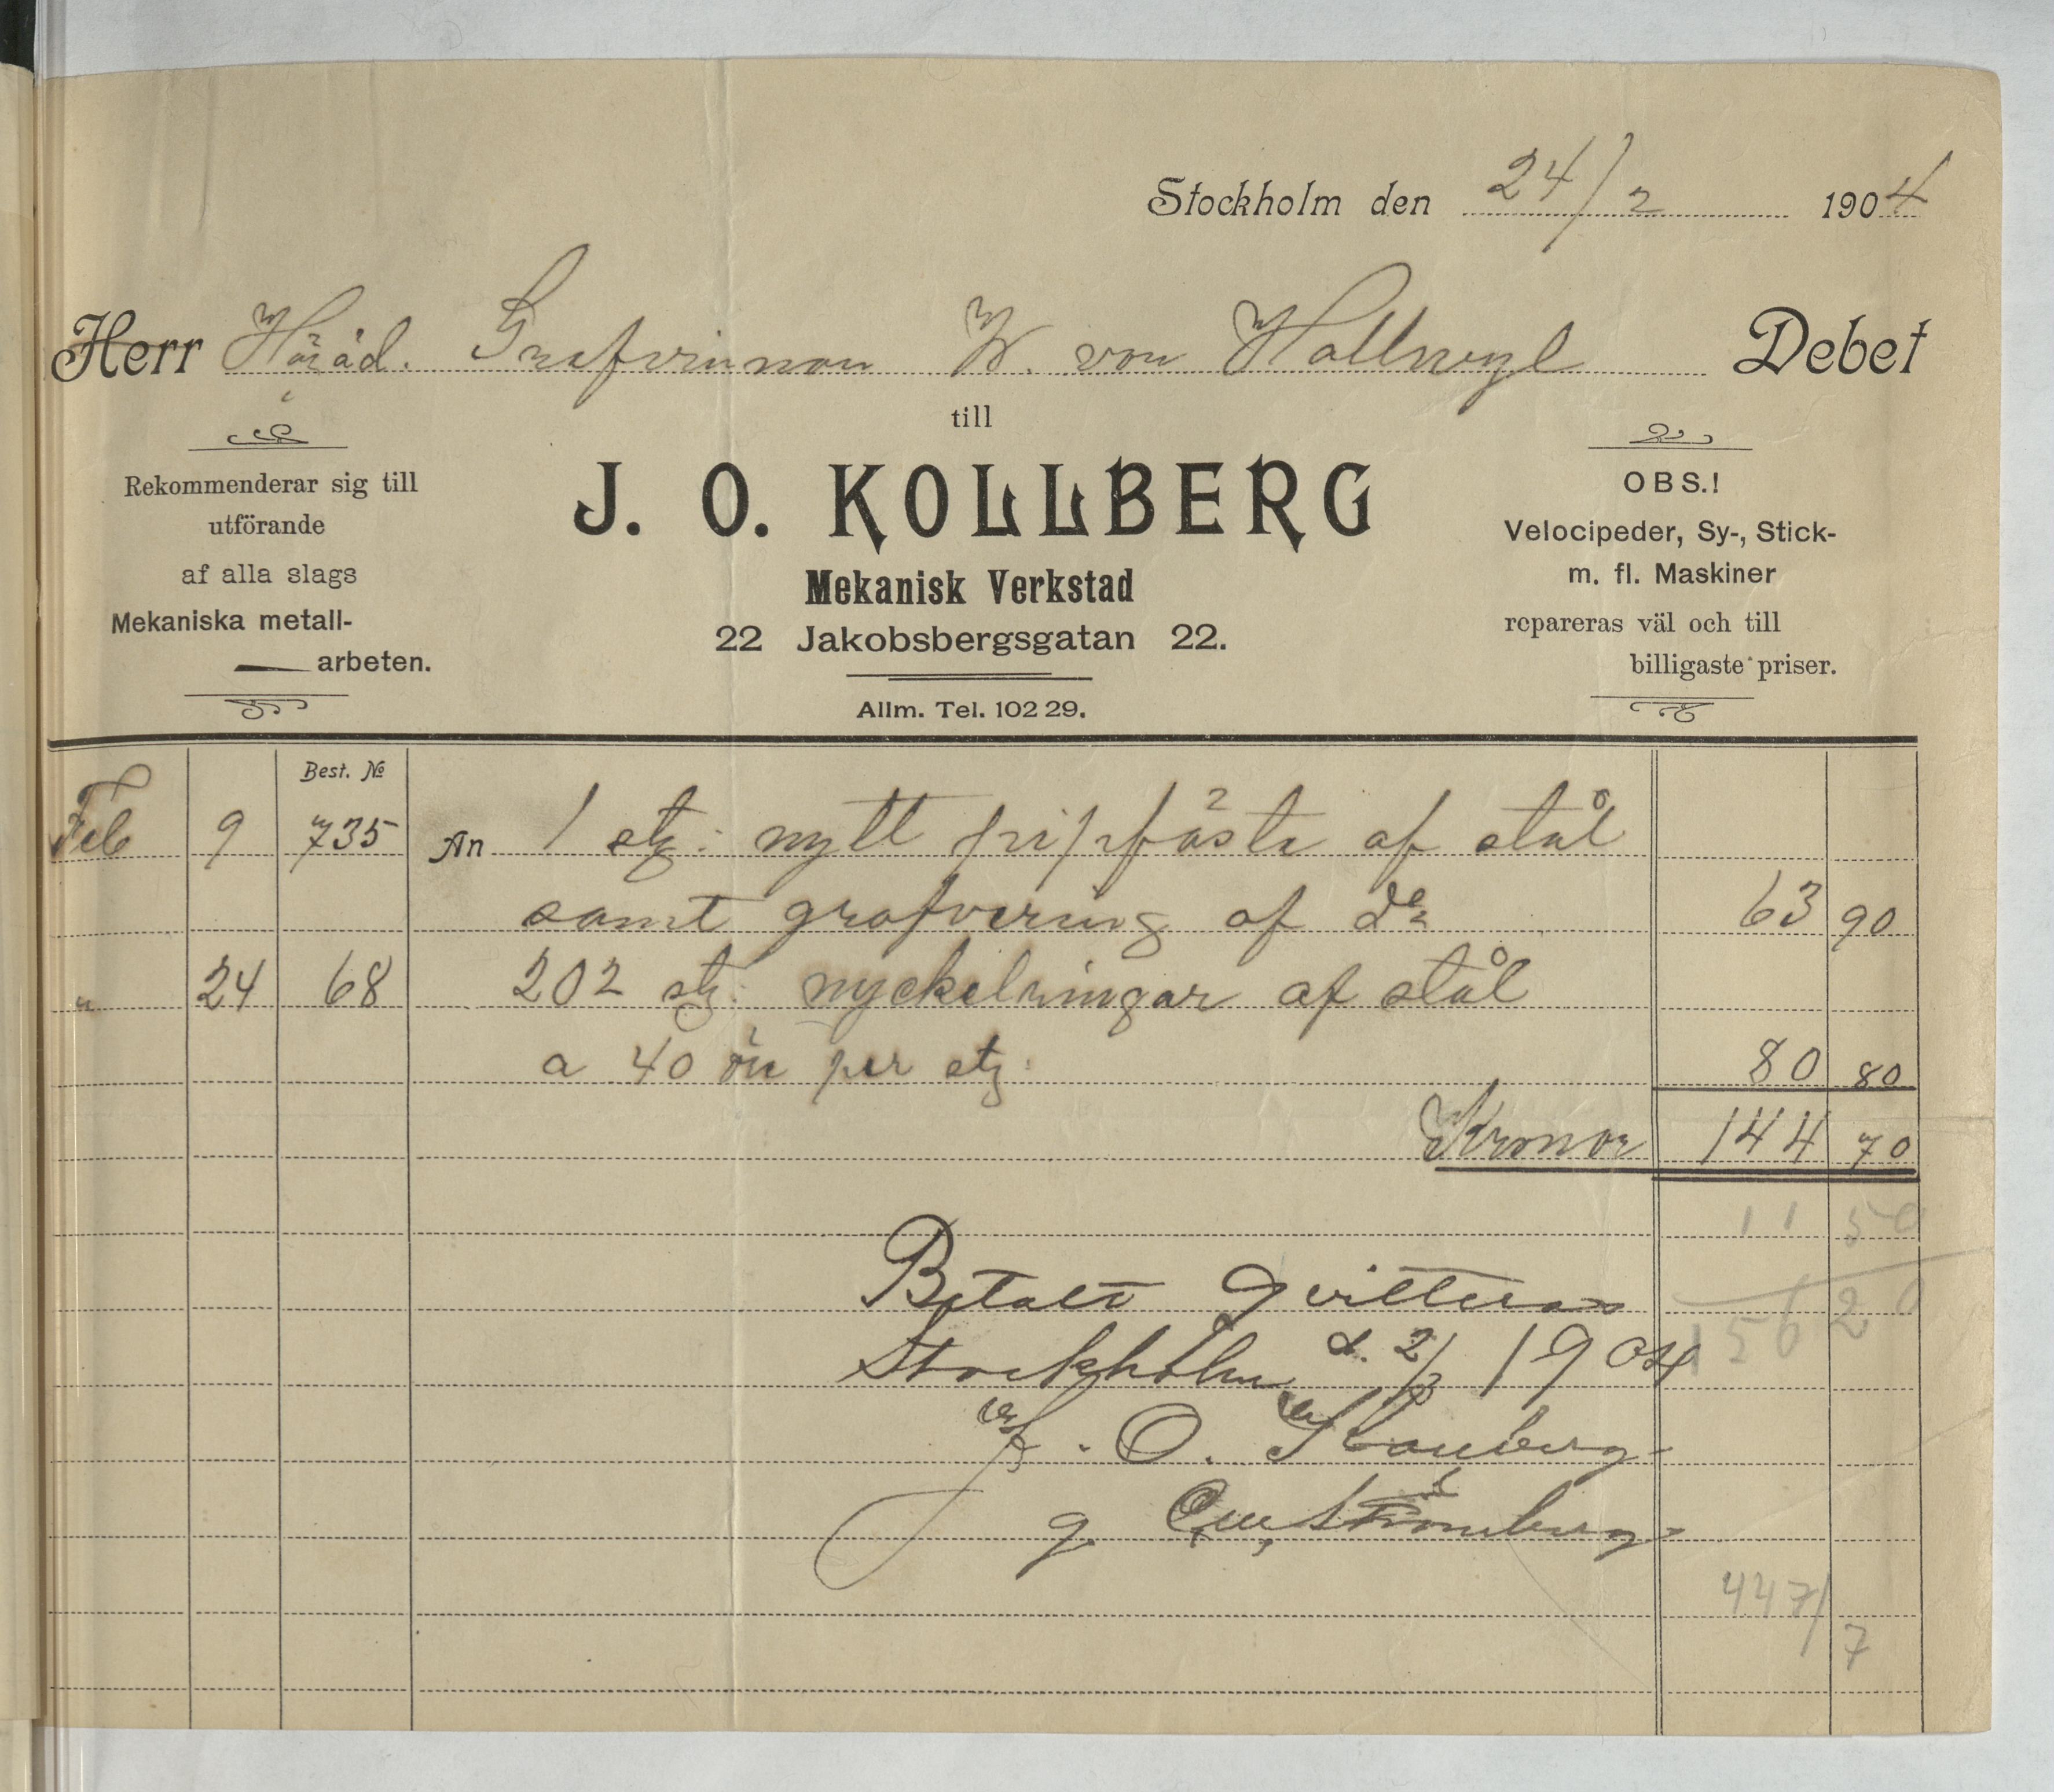 Stockholm den 24/2 1904
Herr Häråd. Grefvinnan W. von Hallwyl Debet
till
J. O. KOLLBERG
Mekanisk Verkstad
22 Jakobsbergsgatan 22.
Allm. Tel. 102 29.
Rekommenderar sig till
utförande
af alla slags
Mekaniska metall-
arbeten.
OBS.!
Velocipeder, Sy-, Stick-
m. fl. Maskiner
repareras väl och till
billigaste priser.
Best. No
Feb 9 735 An 1 st: nytt pipfäste af stål
samt grafvering af do 63 90
" 24 68 202 st: nyckelringar af stål
a 40 öre per st: 80 80
Kronor 144 70
11 50
156 20
Betalt qvitteras
Stockholm d. 2/3 1904
J. O. Kollberg
g. Strömberg
447/7